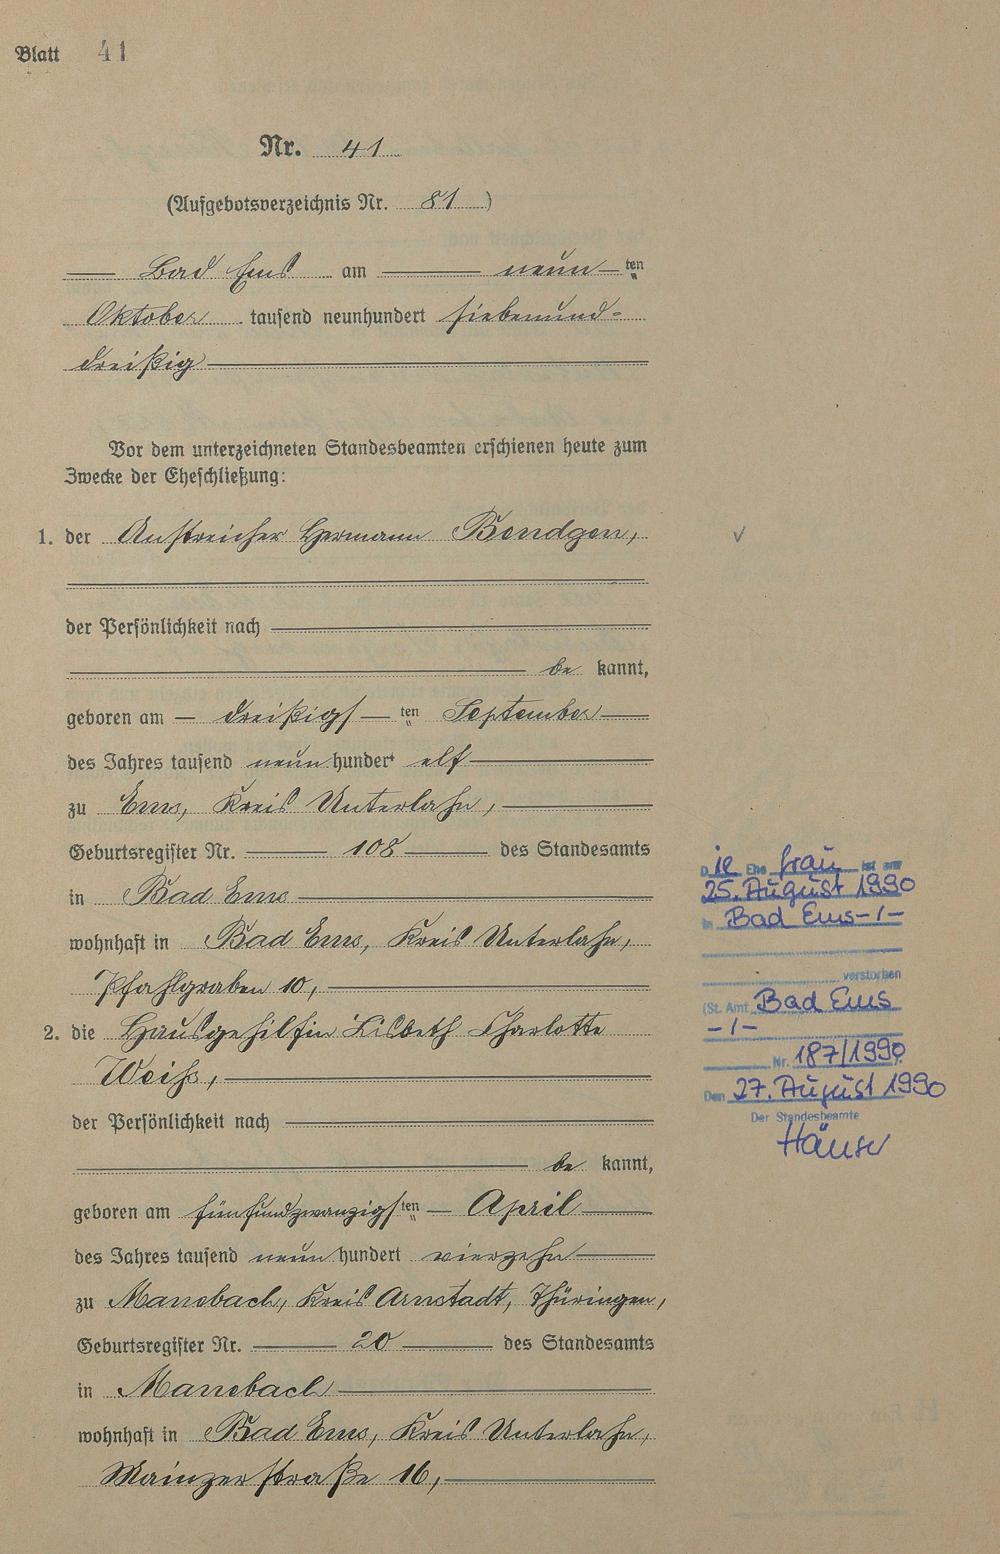 Blatt 41
Nr. 41
(Aufgebotsverzeichnis Nr. 81)
Bad Ems am neunten
Oktober tausend neunhundert siebenund-
dreißig
Vor dem unterzeichneten Standesbeamten erschienen heute zum
Zwecke der Eheschließung:
1. der Anstreicher Hermann Bendgen,
der Persönlichkeit nach
be kannt,
geboren am dreißigsten September
des Jahres tausend neun hundert elf
zu Ems, Kreis Unterlahn,
Geburtsregister Nr. 108 des Standesamts
in Bad Ems
wohnhaft in Bad Ems, Kreis Unterlahn,
Pfahlgraben 10,
2. die Hausgehilfin Lisbeth Charlotte
Weiß,
der Persönlichkeit nach
be kannt,
geboren am fünfundzwanzigsten April
des Jahres tausend neun hundert vierzehn
zu Manebach, Kreis Arnstadt, Thüringen,
Geburtsregister Nr. 20 des Standesamts
in Manebach
wohnhaft in Bad Ems, Kreis Unterlahn,
Mainzerstraße 16,
Die Ehefrau ist am
25. August 1990
in Bad Ems -/-
verstorben
(St. Amt Bad Ems
-/-
Nr. 187/1990)
Den 27. August 1990
Der Standesbeamte